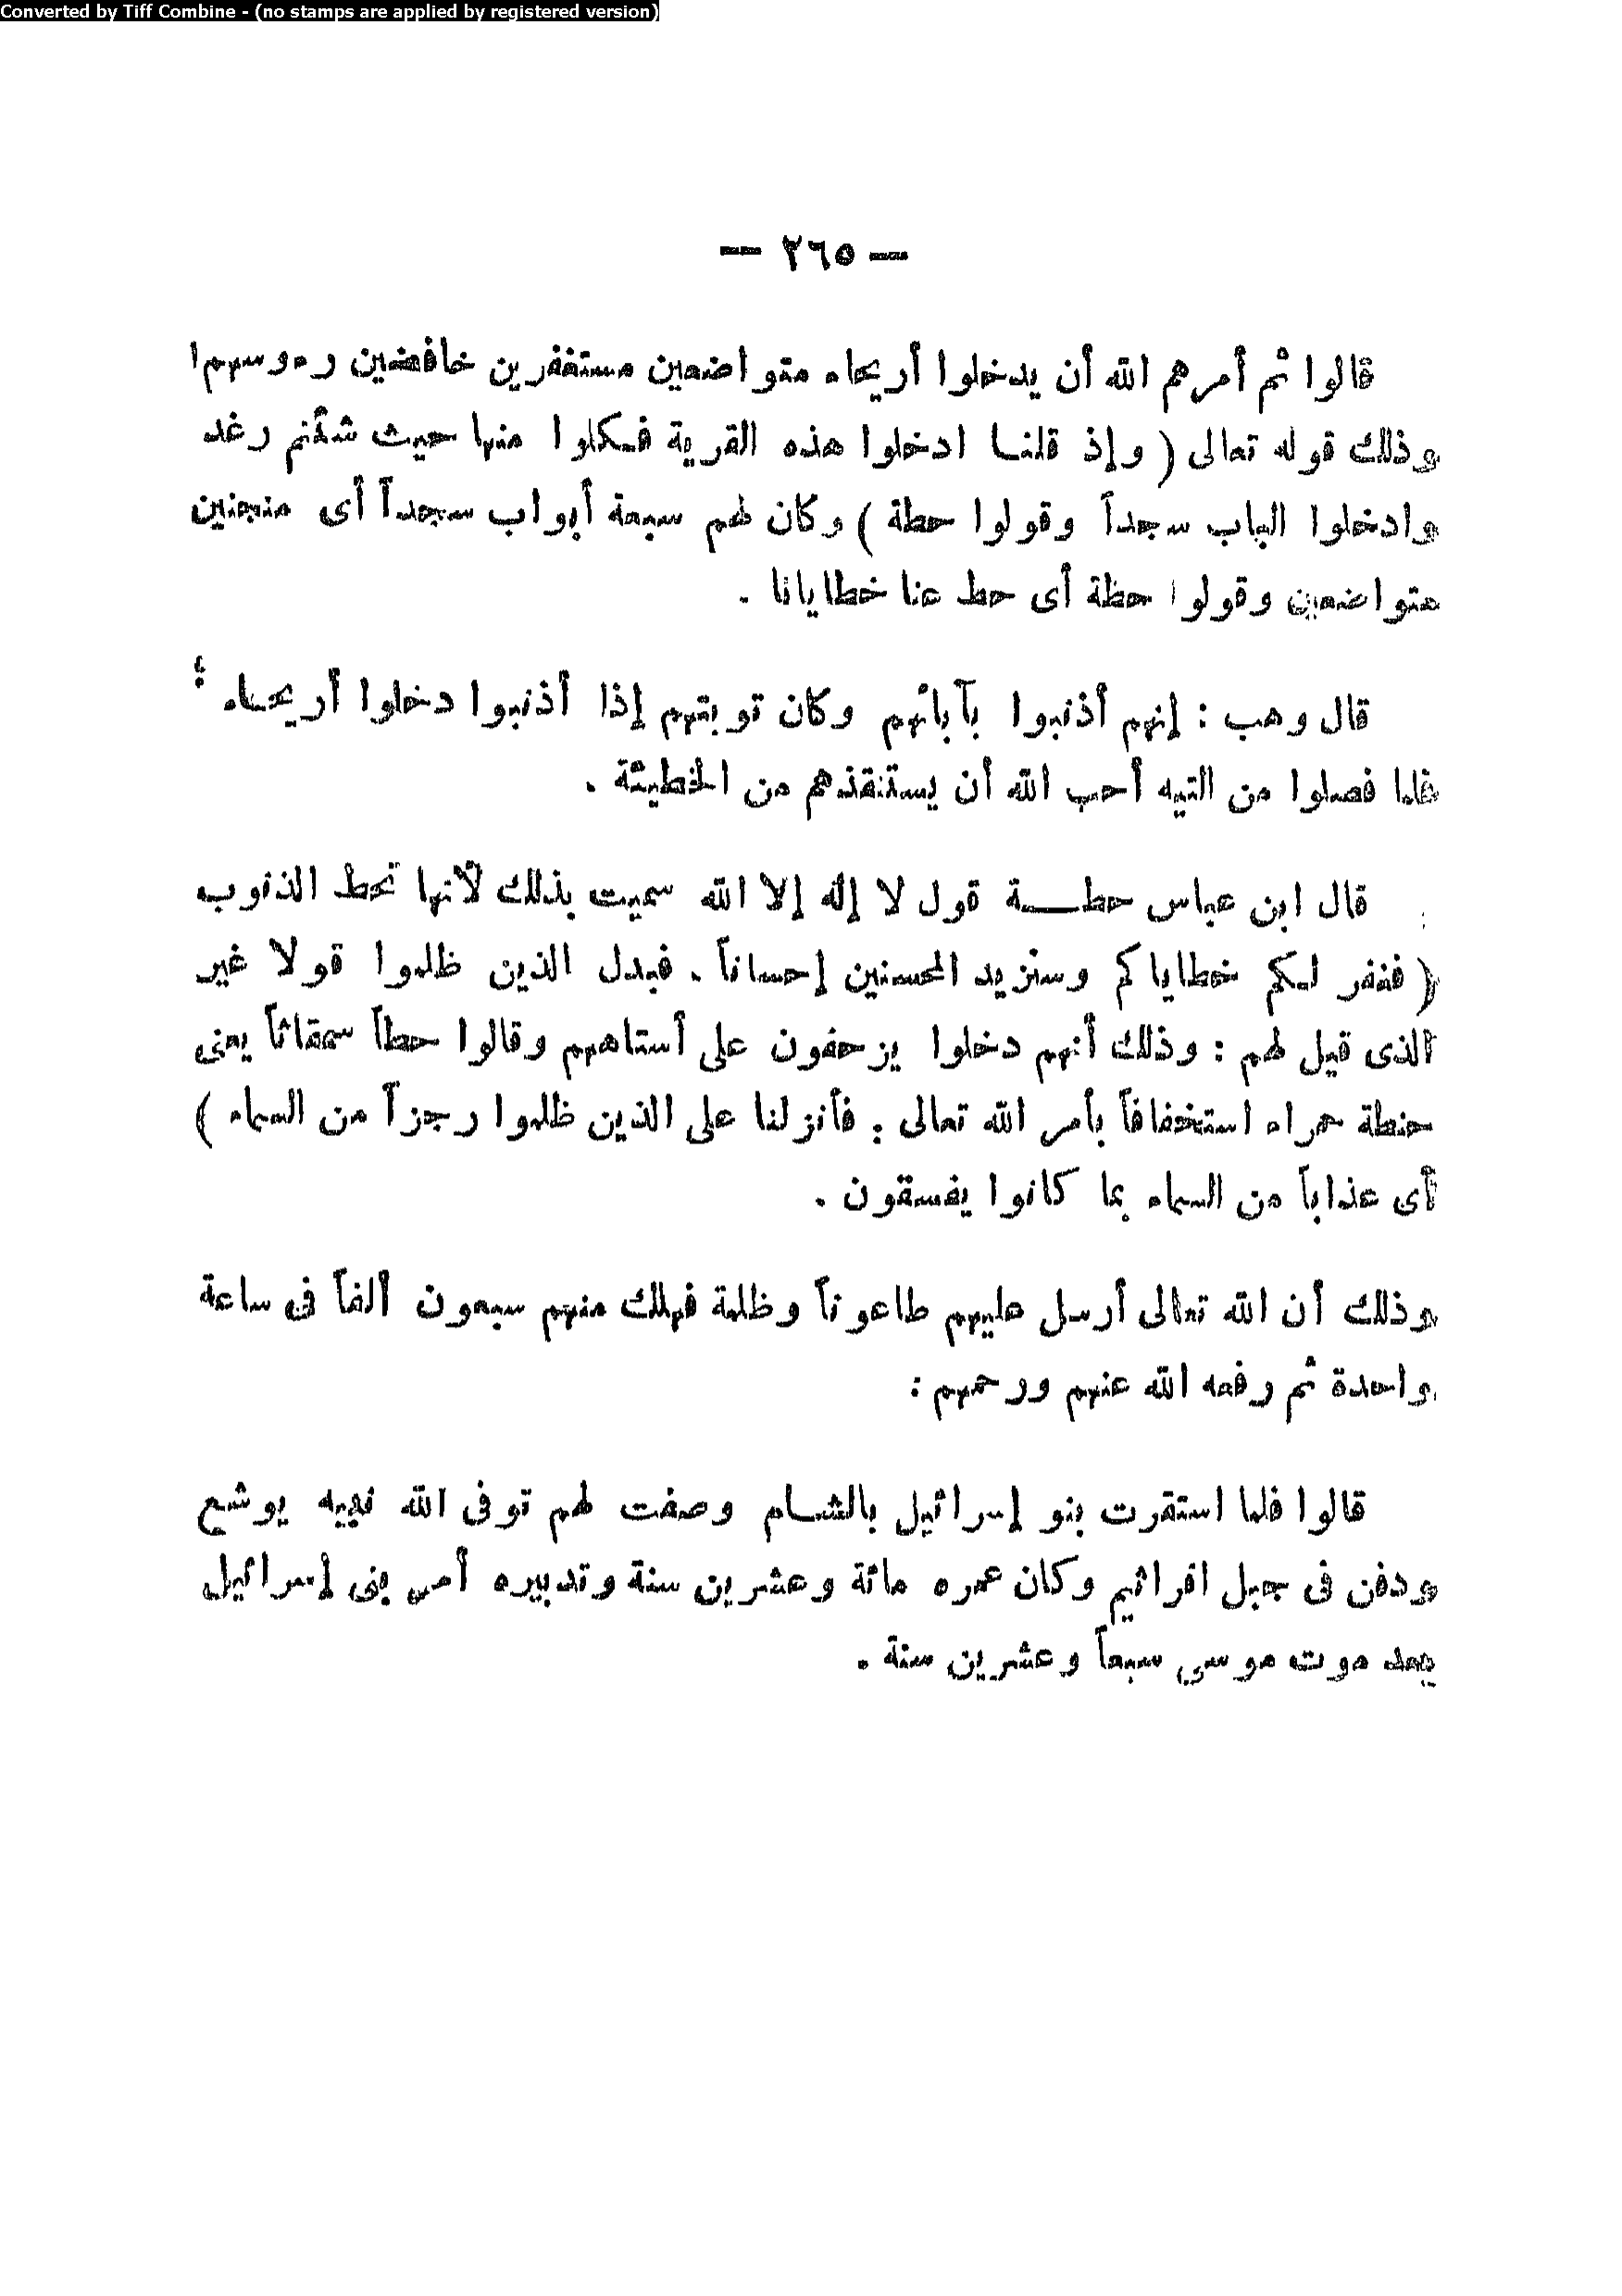 Converted by Tiff Combine - (no stamps are applied by registered version)
— ٢٦٥ —
قالوا ثم أمرهم الله أن يدخلوا أريحاء متواضعين مستغفرين خافضين رءوسهم ا
وذلك قوله تعالى ( وإذ قلنا ادخلوا هذه القرية فكلوا منها حيث شئتم رغد
وادخلوا الباب سجداً وقولوا حطة ) وكان لهم سبعة أبواب سجداً أى منحنين
متواضعين وقولوا حطة أى حط عنا خطايانا .
قال وهب : إنهم أذنبوا بآبائهم وكان توبتهم إذا أذنبوا دخلوا أريحاء ؛
فلما فصلوا من التيه أحب الله أن يستنقذهم من الخطيئة .
قال ابن عباس حطة قول لا إله إلا الله سميت بذلك لأنها تحط الذنوب
( فنغفر لكم خطاياكم وسنزيد المحسنين إحساناً . فبدل الذين ظلموا قولا غير
الذى قيل لهم : وذلك أنهم دخلوا يزحفون على أستاههم وقالوا حطاً سمقاثاً يعنى
حنطة حمراء استخفافاً بأمر الله تعالى : فأنزلنا على الذين ظلموا رجزاً من السماء )
أى عذاباً من السماء بما كانوا يفسقون .
وذلك أن الله تعالى أرسل عليهم طاعوناً وظلمة فهلك منهم سبعون ألفاً فى ساعة
واحدة ثم رفعه الله عنهم ورحمهم :
قالوا فلما استقرت بنو إسرائيل بالشام وصفت لهم توفى الله نبيه يوشع
ودفن فى جبل افرائيم وكان عمره مائة وعشرين سنة وتدبيره أمر بنى إسرائيل
بعد موت موسى سبعاً وعشرين سنة .